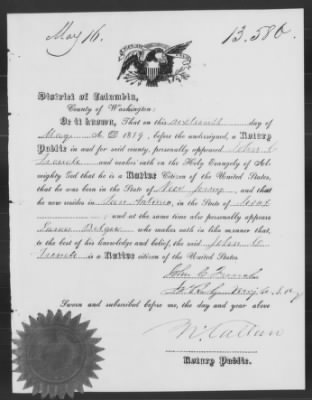 May 16. 13.580.
District of Columbia,
County of Washington:
Be it known, That on this sixteenth day of
May A. D 1879, before the undersigned, a Notary
Public in and for said county, personally appeared John C
and maketh oath on the Holy Evangely of Al-
mighty God that he is a Native Citizen of the United States,
that he was born in the State of New Jersey, and that
he now resides in San Antonio, in the State of Texas
; and at the same time also personally appears
who maketh oath in like manner that,
to the best of his knowledge and belief, the said John C.
is a Native citizen of the United States.
John C
Sworn and subscribed before me, the day and year above
N. Callan
Notary Public.